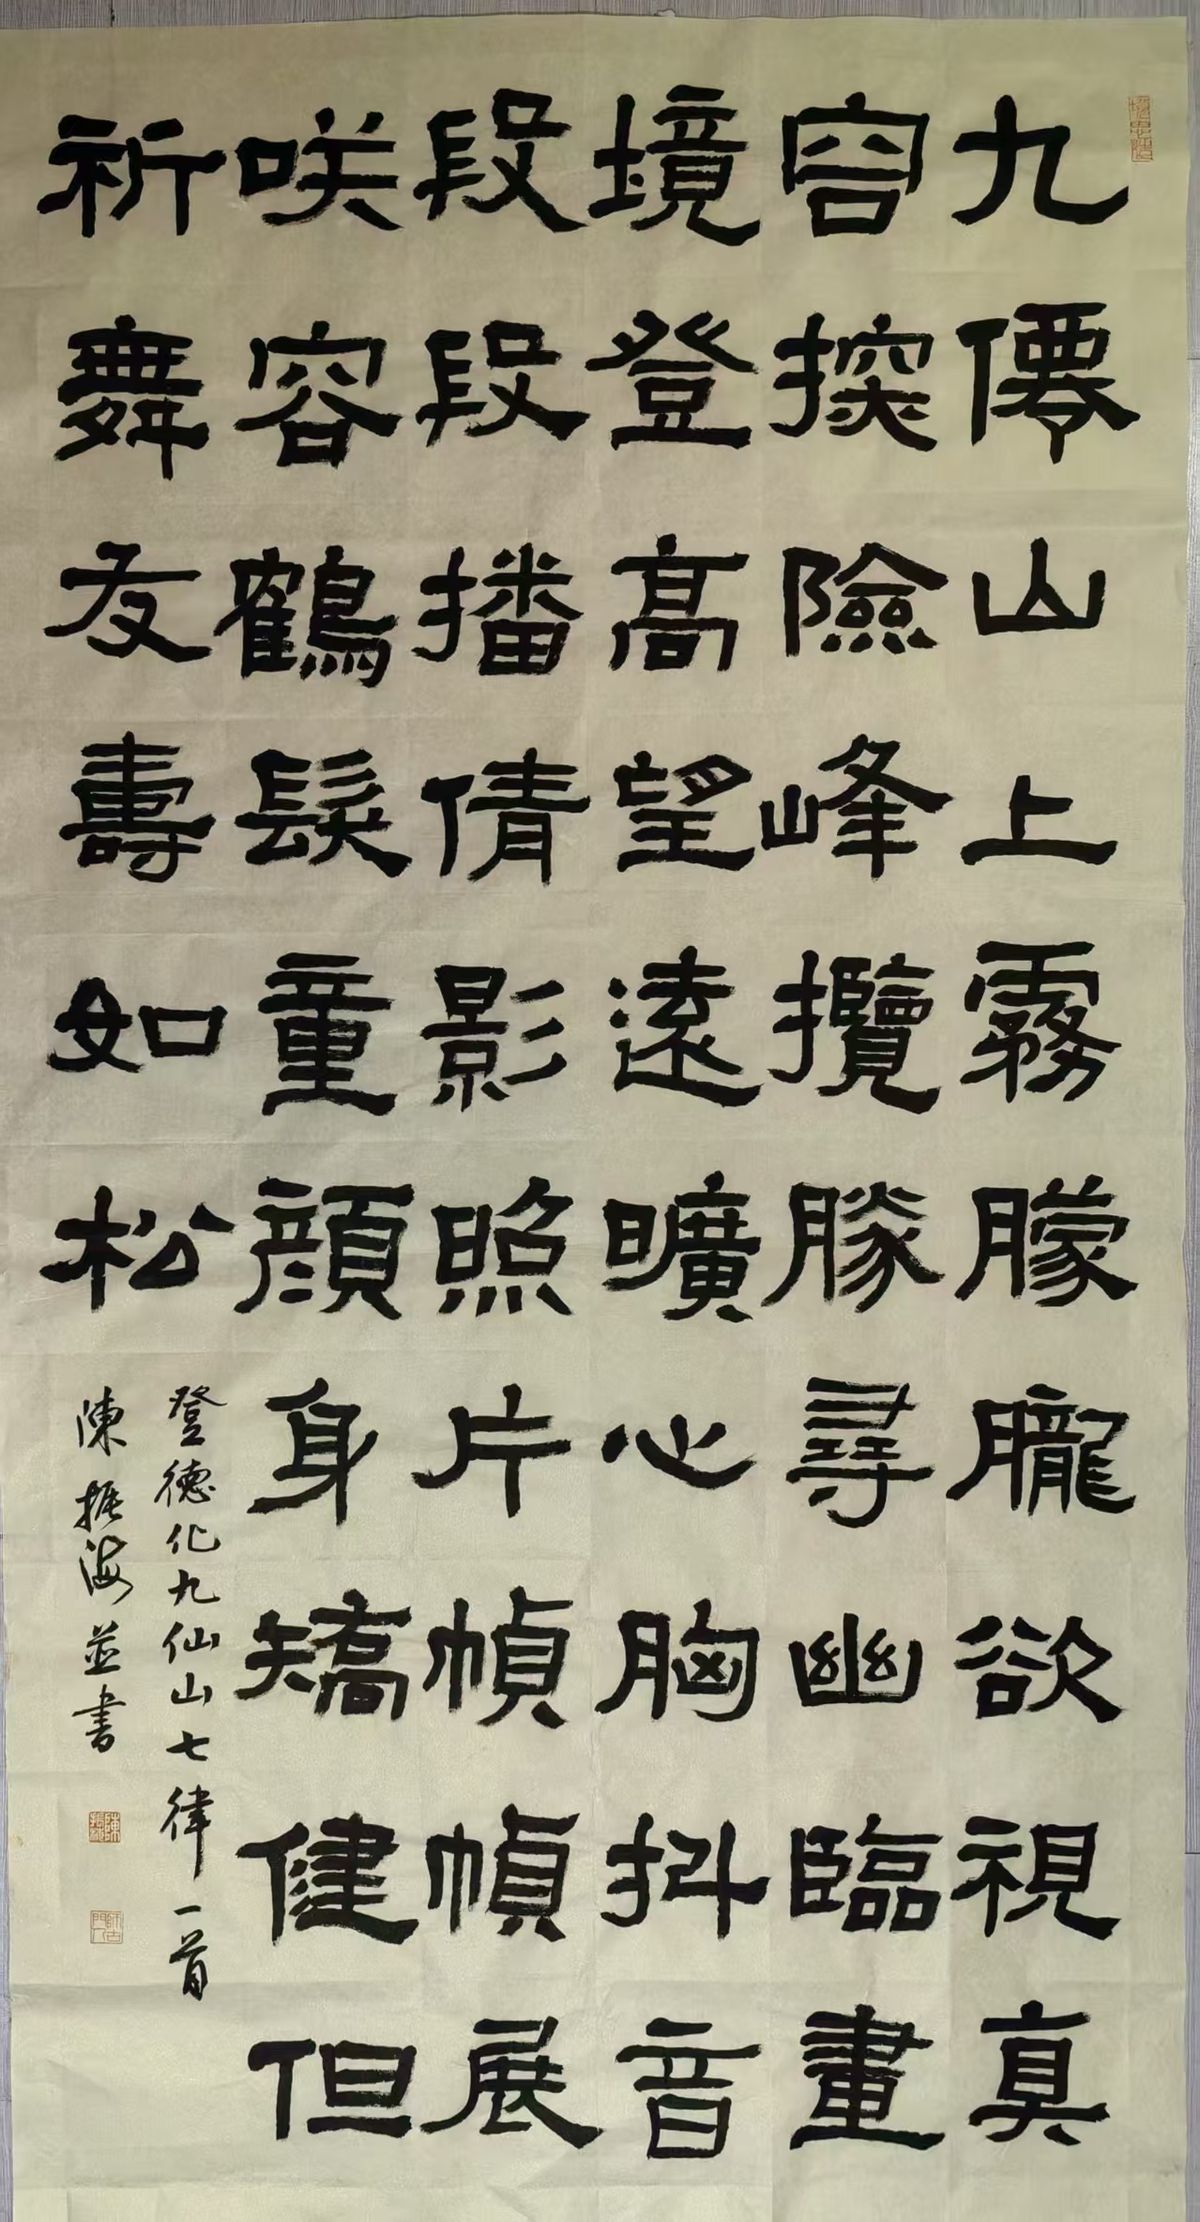 九僊山上霧朦朧欲視真
容探險峰攬勝尋幽臨畫
境登高望遠曠心胸抖音
段段播倩影照片幀幀展
咲容鶴髮童顏身矯健但
祈舞友壽如松
登德化九仙山七律一首
陳振海並書